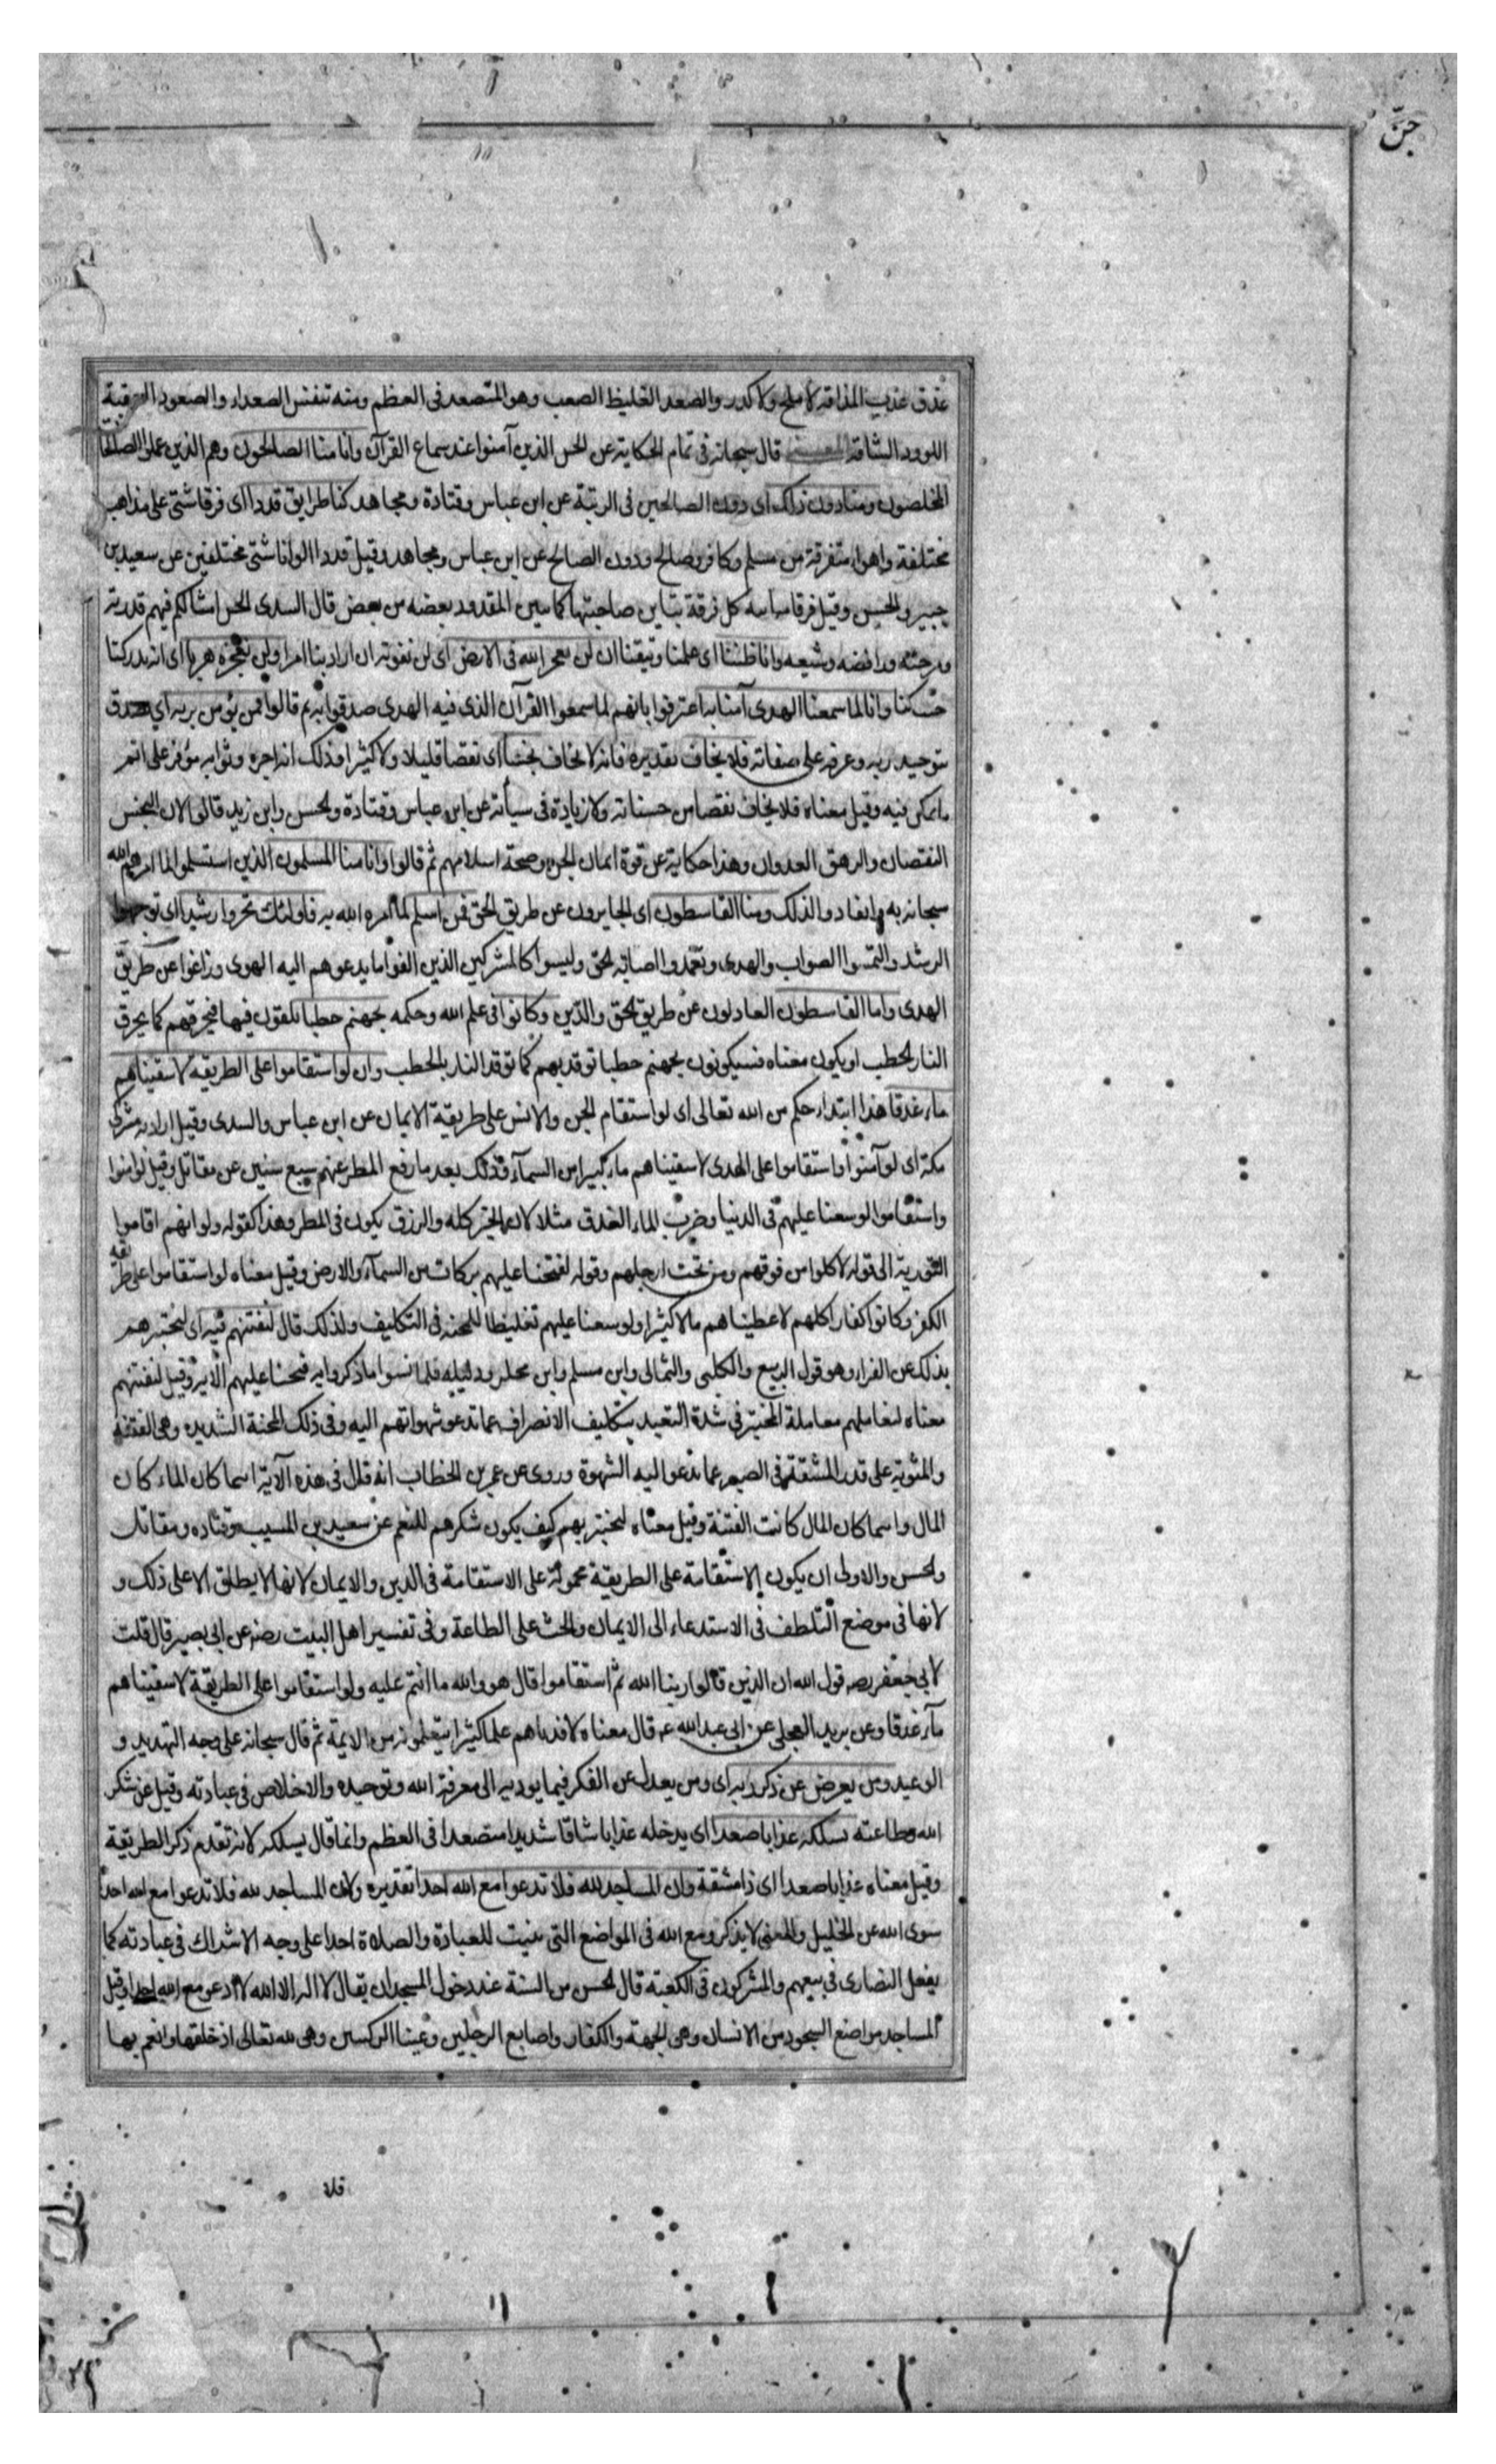 جنّ
غدق عذب المذاقه لا ملح ولا كدر والصعد الغليظ الصعب وهو المتصعد فى العظم ومنه تنفس الصعداء والصعود العقبة
الكوود الشاقة قال سبحانه فى تمام الحكاية عن الجن الذين آمنوا عند سماع القرآن وانا منا الصالحون وهم الذين عملوا الصالحات
المخلصون ومنا دون ذلك اى دون الصالحين فى الرتبة عن ابن عباس وقتادة ومجاهد كنا طرايق قددا اى فرقا شتى على مذاهب
مختلفة واهواء متفرقة من مسلم وكافر وصالح ودون الصالح عن ابن عباس ومجاهد وقيل قددا الوانا شتى مختلفين عن سعيد بن
جبير والحسن وقيل فرقا متباينه كل فرقة يتباين صاحبتها كما يبين المقدود بعضه من بعض قال السدى الجن امثالكم فيهم قدرية
ومرجئه ورافضه وشيعه وانا ظننا اى علمنا وتيقنا ان لن نعجز الله فى الارض اى لن نفوته ان اراد بنا امرا ولن نعجزه هربا اى انه يدركنا
حيث كنا وانا لما سمعنا الهدى آمنا به اعترفوا بانهم لما سمعوا القرآن الذى فيه الهدى صدقوا به ثم قالوا فمن يؤمن بربه اي صدق
بتوحيد ربه وعرفه على صفاته فلا يخاف تقديره فانه لا يخاف بخسا اى نقصا قليلا ولا كثيرا وذلك ان اجره وثوابه موفر على اتم
ما يمكن فيه وقيل معناه فلا يخاف نقصا من حسناته ولا زيادة فى سيأته عن ابن عباس وقتادة والحسن وابن زيد قالوا لان البخس
النقصان والرهق العدوان وهذا حكاية عن قوة ايمان الجن وصحة اسلامهم ثم قالوا وانا منا المسلمون الذين استسلموا لما امرهم الله
سبحانه به وانقادوا لذلك ومنا القاسطون اى الجايرون عن طريق الحق فمن اسلم لما امره الله به فاولئك تحروا رشدا اى توجهوا
الرشد والتمسوا الصواب والهدى وتعمدوا اصابة الحق وليسوا كالمشركين الذين الفوا ما يدعوهم اليه الهوى وزاغوا عن طريق
الهدى واما القاسطون العادلون عن طريق الحق والدّين وكانوا فى علم الله وحكمه لجهنم حطبا يلقون فيها فتحرقهم كما يحرق
النار الحطب او يكون معناه فسيكونون لجهنم حطبا توقد بهم كما توقد النار بالحطب وان لو استقاموا على الطريقه لاسقيناهم
ماء غدقا هذا ابتداء حكم من الله تعالى اى لو استقام الجن والانس على طريقة الايمان عن ابن عباس والسدى وقيل اراد به مشركى
مكة اى لو آمنوا واستقاموا على الهدى لاسقيناهم ماء كثيرا من السمآء وذلك بعد ما رفع المطر عنهم سبع سنين عن مقاتل وقيل لو امنوا
واستقاموا لوسعنا عليهم فى الدنيا وضرب الماء الغدق مثلا لان الخير كله والرزق يكون فى المطر وهذا كقوله ولو انهم اقاموا
التورية الى قوله لاكلوا من فوقهم ومن تحت ارجلهم وقوله لفتحنا عليهم بركات من السمآء والارض وقيل معناه لو استقاموا على طريقه
الكفر وكانوا كفارا كلهم لاعطيناهم مالا كثيرا ولوسعنا عليهم تغليظا للمحنه فى التكليف ولذلك قال لنفتنهم فيه اى لنختبرهم
بذلك عن الفراء وهو قول الربيع والكلبى والثمالى وابن مسلم وابن مجلز ودليله فلما نسوا ما ذكروا به فتحنا عليهم الآية وقيل لنفتنهم
معناه لنعاملهم معاملة المختبر فى شدة التعبد بتكليف الانصراف عما تدعو شهواتهم اليه وفى ذلك المحنة الشديده وهى الفتنة
والمثوبة على قدر المشقة فى الصبر عما تدعو اليه الشهوة وروى عن عمر بن الخطاب انه قال فى هذه الآية اينما كان الماء كان
المال واينما كان المال كانت الفتنة وقيل معناه لنختبر بهم كيف يكون شكرهم للنعم عن سعيد بن المسيب وقتاده ومقاتل
والحسن والاولى ان يكون الاستقامة على الطريقة محمولة على الاستقامة فى الدين والايمان لانها لا يطلق الا على ذلك و
لانها فى موضع التلطف فى الاستدعاء الى الايمان والحث على الطاعة وفى تفسير اهل البيت عن ابى بصير قال قلت
لابى جعفر قول الله ان الذين قالوا ربنا الله ثم استقاموا قال هو والله ما انتم عليه ولو استقاموا على الطريقة لاسقيناهم
مآء غدقا وعن بريد العجلى عن ابى عبد الله ع قال معناه لافدناهم علما كثيرا يتعلمونه من الايمة ثم قال سبحانه على وجه التهديد و
الوعيد ومن يعرض عن ذكر ربه اى ومن يعدل عن الفكر فيما يوديه الى معرفة الله وتوحيده والاخلاص فى عبادته وقيل عن شكر
الله وطاعته يسلكه عذابا صعدا اى يدخله عذابا شاقا شديدا متصعدا فى العظم وانما قال يسلكه لانه تقدم ذكر الطريقة
وقيل معناه عذابا صعدا اى ذا مشقة وان المساجد لله فلا تدعوا مع الله احدا تقديره ولان المساجد لله فلا تدعوا مع الله احدا
سوى الله عن الخليل والمعنى لا يذكروا مع الله فى المواضع التى بنيت للعبادة والصلاة احدا على وجه الاشراك فى عبادته كما
يفعل النصارى فى بيعهم والمشركون فى الكعبة قال الحسن من السنة عند دخول المسجد ان يقال لا اله الا الله لا ادعو مع الله احدا وقيل
المساجد مواضع السجود من الانسان وهى الجبهة والكفان واصابع الرجلين وعينا الركبتين وهى لله تعالى اذ خلقها وانعم بها
فلا